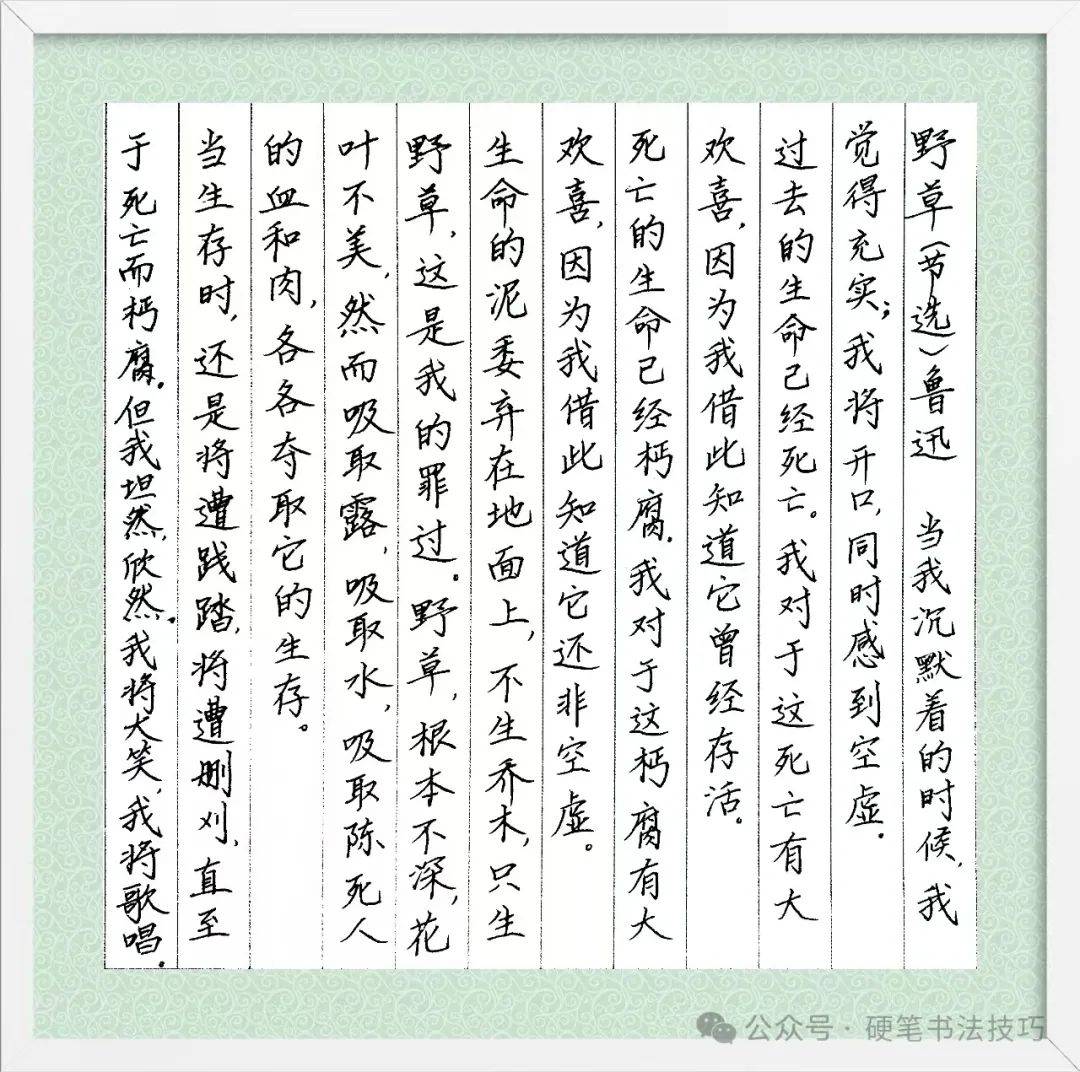 野草(节选)鲁迅 当我沉默着的时候,我
觉得充实;我将开口,同时感到空虚.
过去的生命已经死亡。我对于这死亡有大
欢喜,因为我借此知道它曾经存活。
死亡的生命已经朽腐.我对于这朽腐有大
欢喜,因为我借此知道它还非空虚。
生命的泥委弃在地面上,不生乔木,只生
野草,这是我的罪过.野草,根本不深,花
叶不美,然而吸取露,吸取水,吸取陈死人
的血和肉,各各夺取它的生存。
当生存时,还是将遭践踏,将遭删刈,直至
于死亡而朽腐.但我坦然,欣然.我将大笑,我将歌唱.
公众号·硬笔书法技巧